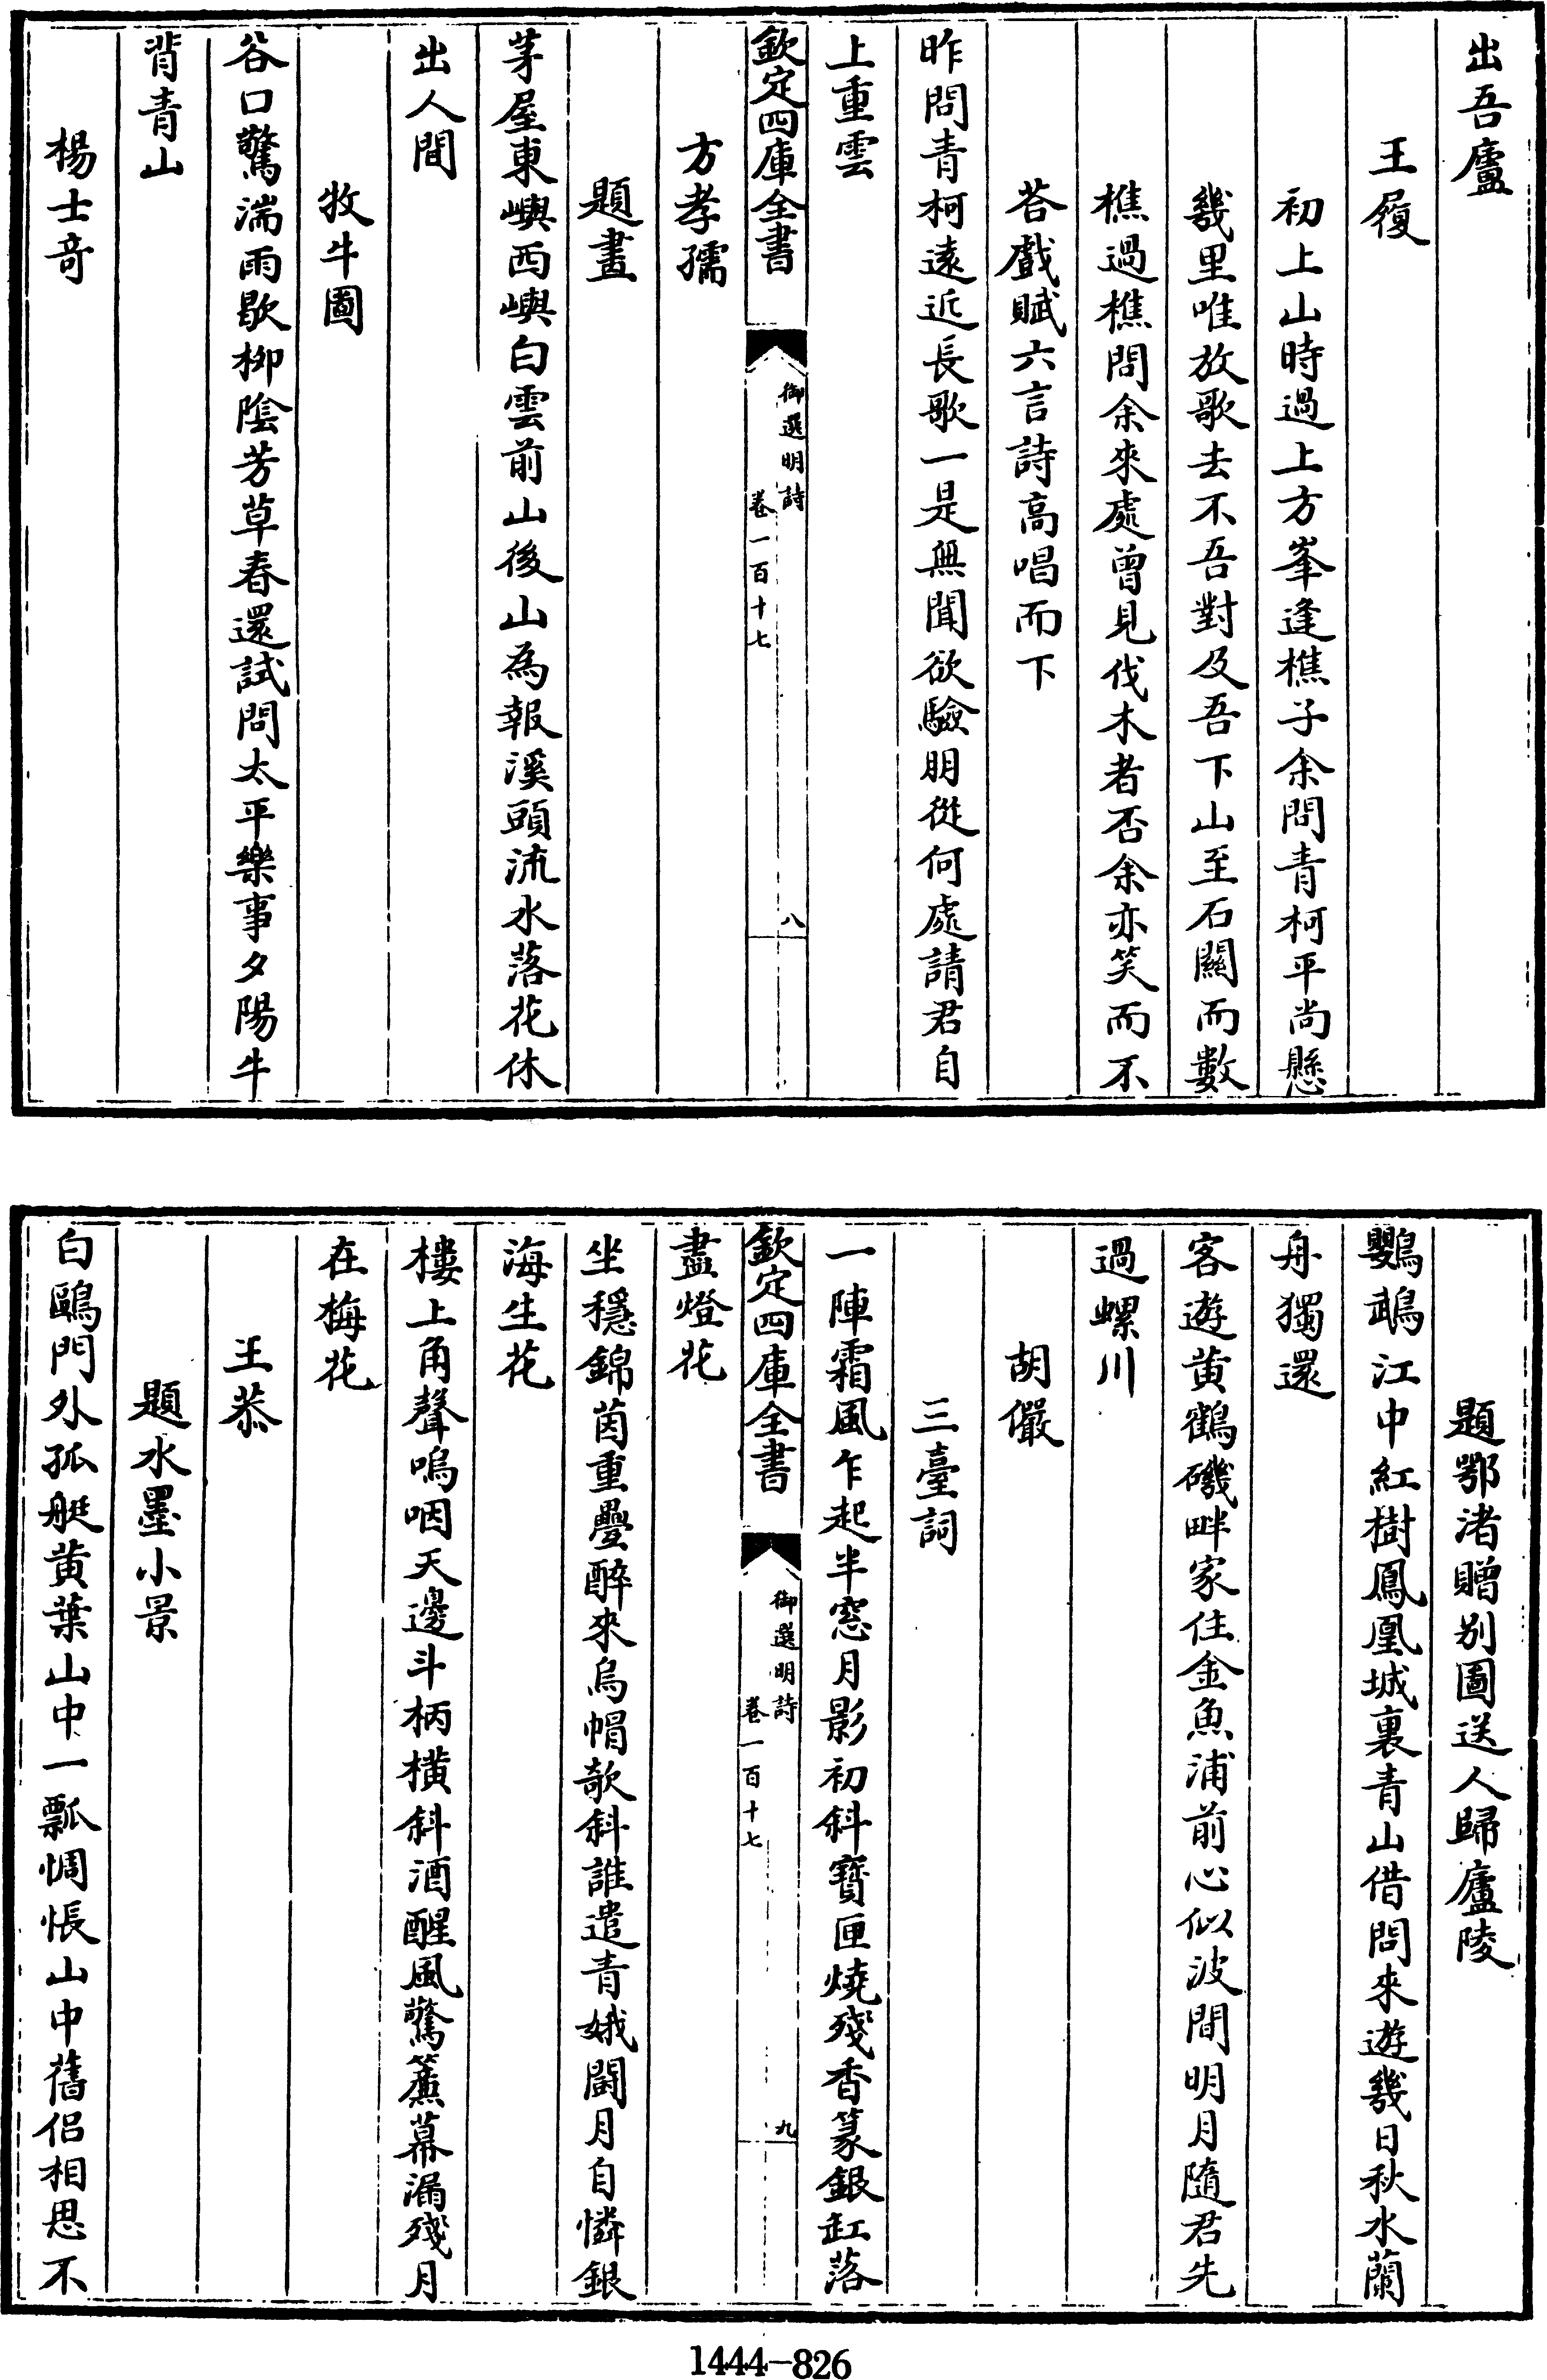 出吾廬
王履
初上山時過上方峯逢樵子余問青柯平尚懸
幾里唯放歌去不吾對及吾下山至石關而數
樵過樵問余來處曾見伐木者否余亦笑而不
荅戲賦六言詩高唱而下
昨問青柯遠近長歌一是無聞欲驗明從何處請君自
上重雲
欽定四庫全書
御選明詩
卷一百十七
八
方孝孺
題畫
茅屋東嶼西嶼白雲前山後山為報溪頭流水落花休
出人間
牧牛圖
谷口驚湍雨歇柳陰芳草春還試問太平樂事夕陽牛
背青山
楊士奇
題鄂渚贈别圖送人歸廬陵
鸚鵡江中紅樹鳳凰城裏青山借問來遊幾日秋水蘭
舟獨還
客遊黄鶴磯畔家住金魚浦前心似波間明月隨君先
過螺川
胡儼
三臺詞
一陣霜風乍起半窓月影初斜寶匣燒殘香篆銀缸落
欽定四庫全書
御選明詩
卷一百十七
九
盡燈花
坐穩錦茵重疊醉來烏帽欹斜誰遣青娥鬪月自憐銀
海生花
樓上角聲嗚咽天邊斗柄橫斜酒醒風驚簾幕漏殘月
在梅花
王恭
題水墨小景
白鷗門外孤艇黄葉山中一瓢惆悵山中舊侣相思不
1444-826